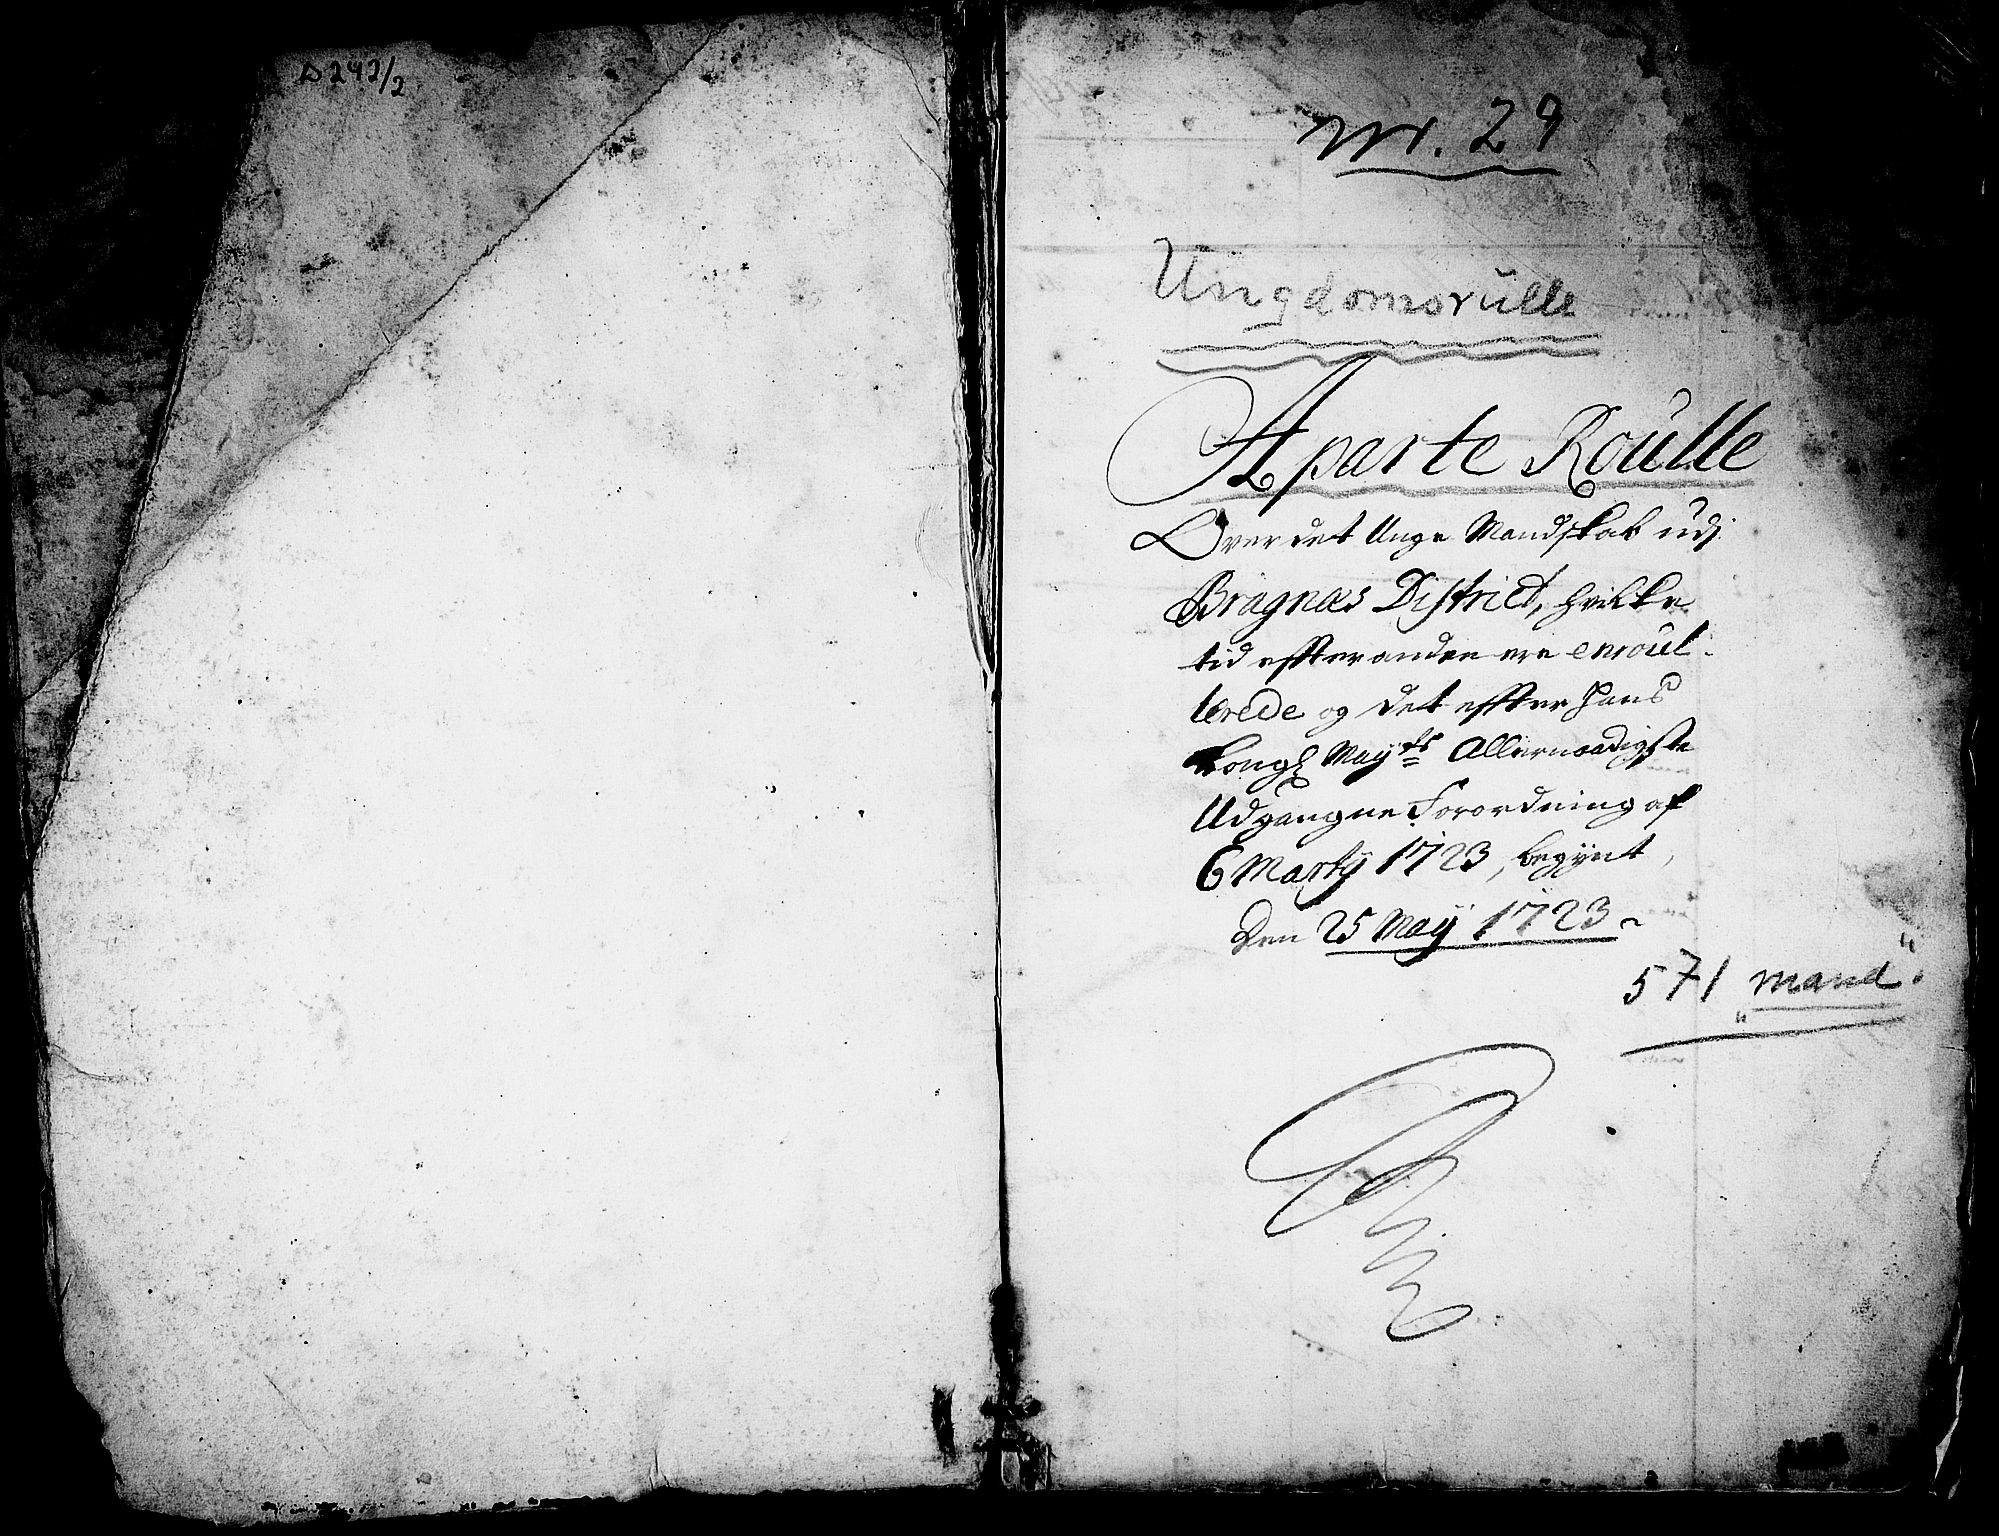 D 242/2
nr. 29
Ungdomsrulle
Aparte Roulle
Over det Unge Mandskab udj
Bragnæs District, hvilke
tid effter anden ere enroul-
lerede og det effter Hans
Kongl May:ts Allernaadigste
Udgangne Forordning af
6 Martij 1723, begynt
Den 25 Maij 1723
571 mand